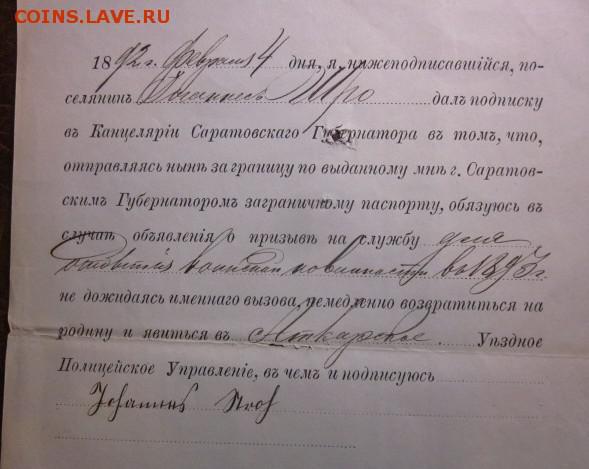 COINS.LAVE.RU
1892 г. Февраля 4 дня, я, нижеподписавшійся, по-
селянинъ Іоганнесъ Штро далъ подписку
въ Канцеляріи Саратовскаго Губернатора въ томъ, что,
отправляясь нынѣ за границу по выданному мнѣ г. Саратов-
скимъ Губернаторомъ заграничному паспорту, обязуюсь въ
случаѣ объявленія о призывѣ на службу для
отбытія воинской повинности въ 1895 г.
не дожидаясь именнаго вызова, немедленно возвратиться на
родину и явиться въ Аткарское Уѣздное
Полицейское Управленіе, въ чемъ и подписуюсь
Johannes Stroh